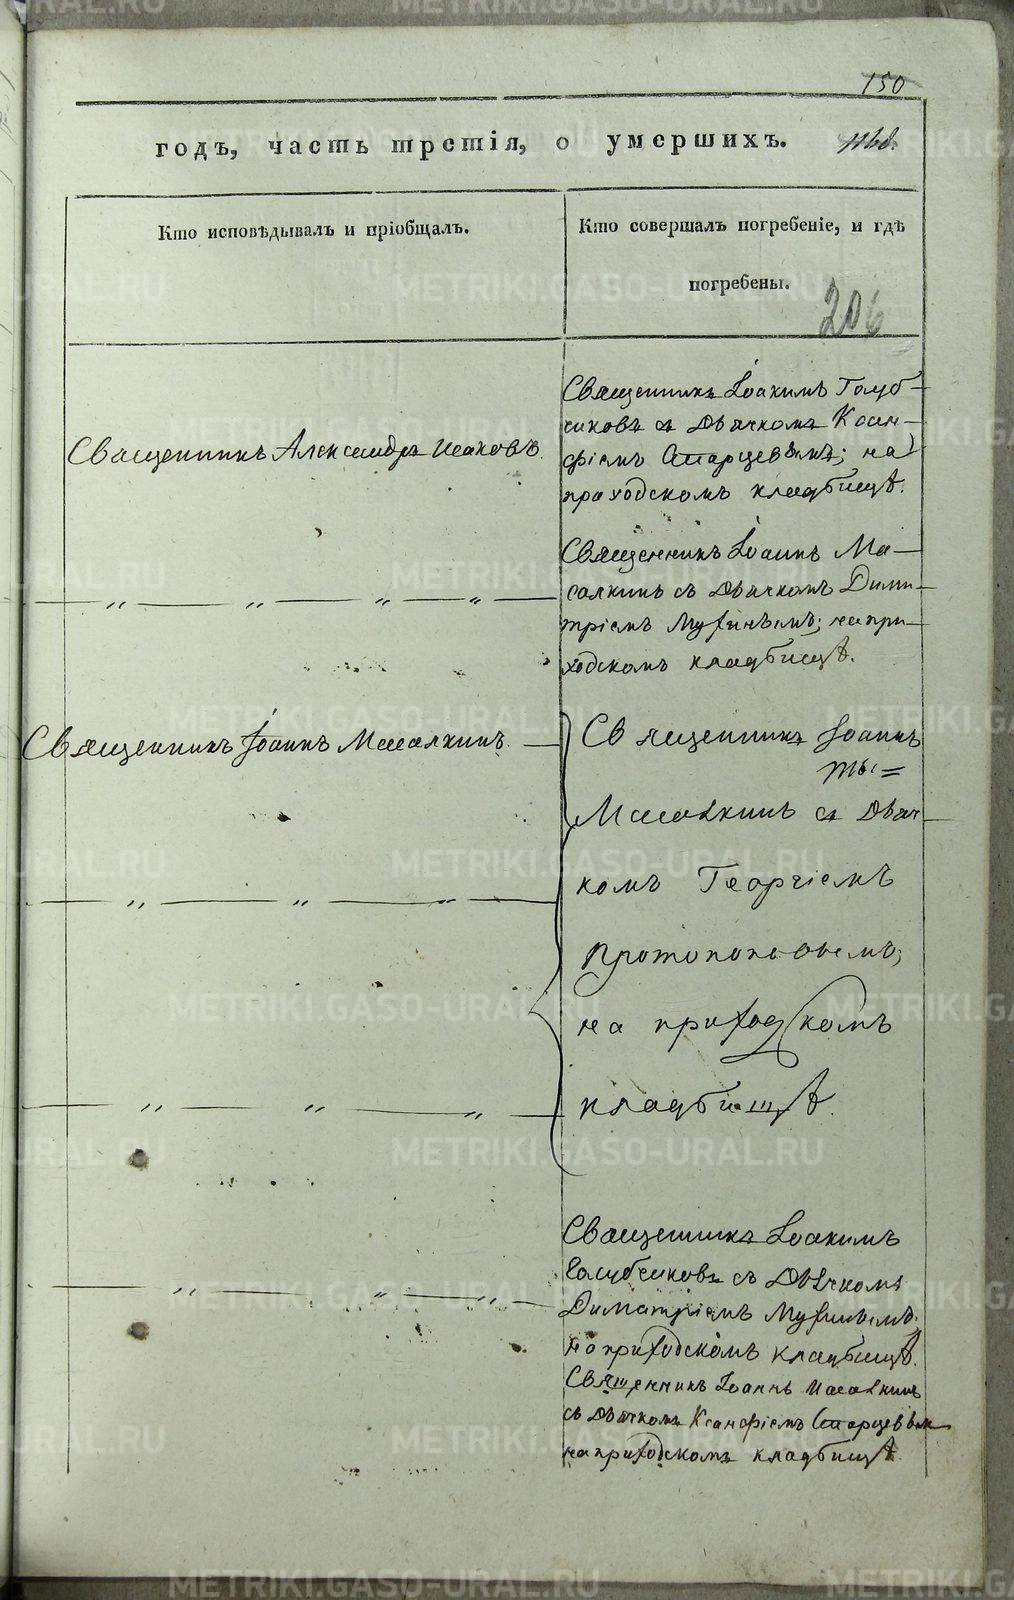 150
годъ, часть третія, о умершихъ.
Кто исповѣдывалъ и пріобщалъ.
Кто совершалъ погребеніе, и гдѣ
погребены.
206
Священникъ Іоакимъ Голуб-
чиковъ съ Дьячкомъ Ксан-
Священникъ Александръ Исаковъ.
фіемъ Старцевымъ; на
приходскомъ кладбищѣ.
Священникъ Іоаннъ Ма-
— „ — „ — „ — „ —
салкинъ съ Дьячкомъ Дими-
тріемъ Мухинымъ; на при-
ходскомъ кладбищѣ.
Священникъ Іоаннъ Масалкинъ. —
Священникъ Іоаннъ
Масалкинъ съ Дьяч-
— „ — „ — „ —
комъ Георгіемъ
Протопоповымъ;
на приходскомъ
— „ — „ — „ —
кладбищѣ.
Священникъ Іоакимъ
— „ — „ — „ —
Голубчиковъ съ Дьячкомъ
Димитріемъ Мухинымъ;
на приходскомъ кладбищѣ.
Священникъ Іоаннъ Масалкинъ
съ Дьячкомъ Ксанфіемъ Старцевым
на приходскомъ кладбищѣ.
METRIKI.GASO-URAL.RU